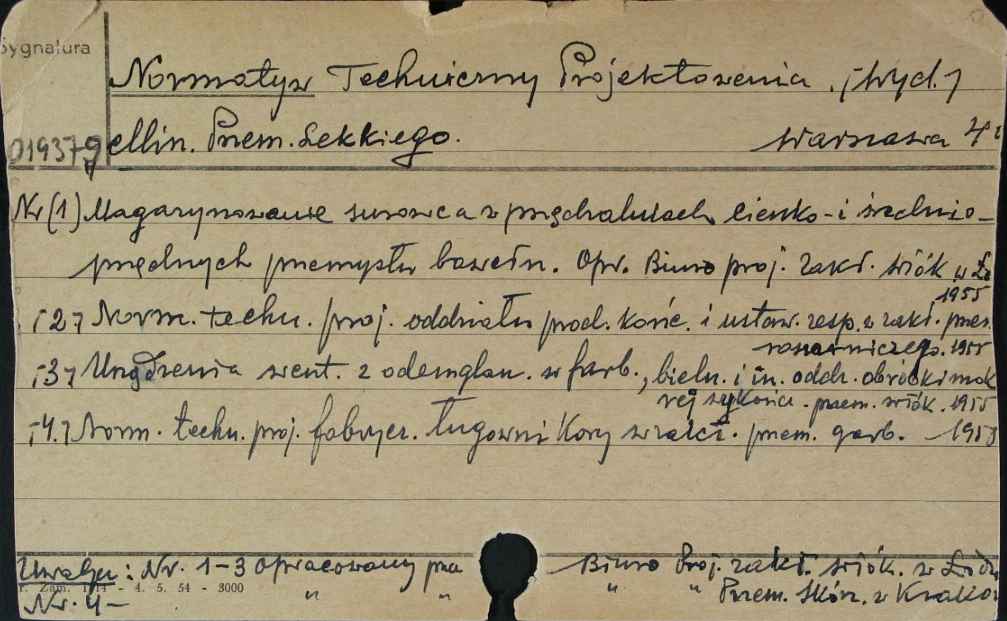 Sygnatura
Normatyw Techniczny Projektowania. /Wyd./
019379 Min. Przem. Lekkiego. Warszawa
Nr (1) Magazynowanie surowca w przędzalniach cienko- i średnio-
przędnych przemysłu bawełn. Opr. Biuro proj. zakł. włók w
1955
/2/ Norm. techn. proj. oddziału prod. końc. i ustaw. resp. w zakł. przem.
roszarniczego. 1955
/3/ Urządzenia went. z odemglan. w farb., bieln. i in. oddz. obróbki mok
rej wykończ. przem. włók. 1955
/4./ Norm. techn. proj. fabrycz. ługowni kory w zakł. przem. garb. 1953
Uwaga: Nr. 1-3 opracowany prze Biuro Proj. zakł. włók. w Łodzi
Zam. 4. 5. 54 - 3000
Nr. 4- " " " Przem. Skórz. w Krako